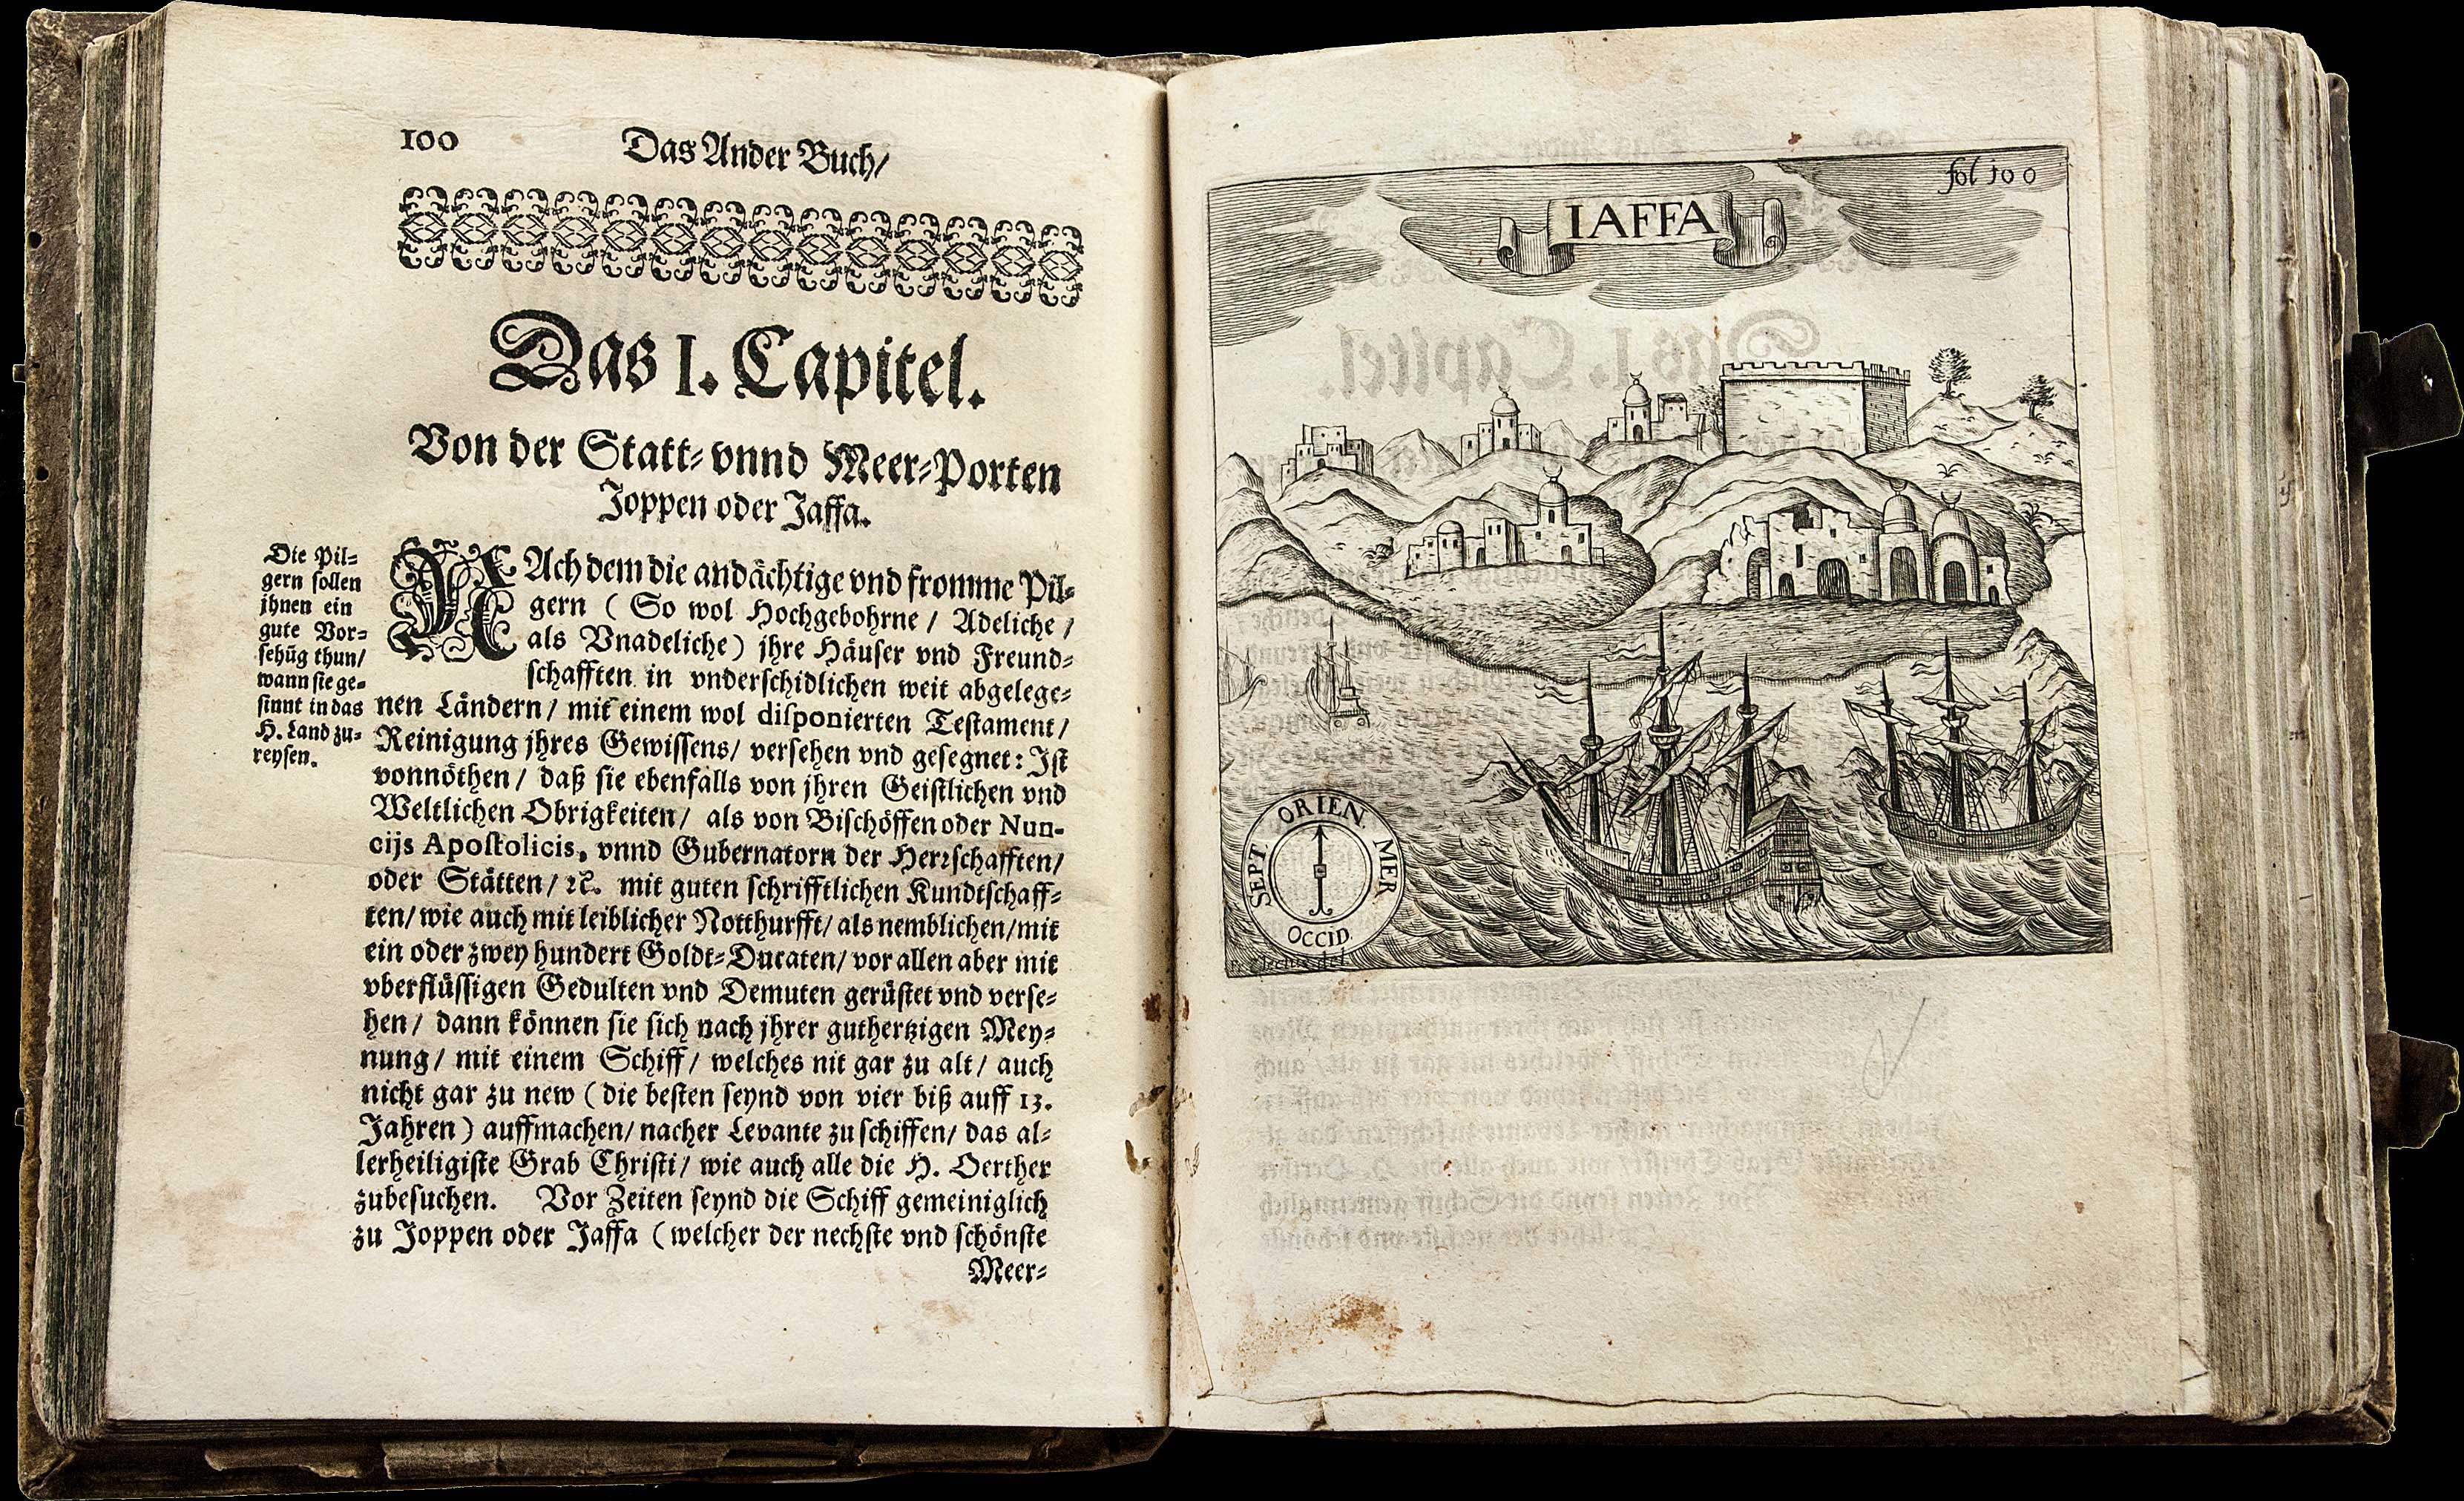 100
Das Ander Buch/
Das I. Capitel.
Von der Statt- vnnd Meer-Porten
Joppen oder Jaffa.
Die Pil-
gern sollen
jhnen ein
gute Vor-
sehũg thun/
wann sie ge-
sinnt in das
H. Land zu-
reysen.
NAch dem die andächtige vnd fromme Pil-
gern ( So wol Hochgebohrne / Adeliche /
als Vnadeliche) jhre Häuser vnd Freund-
schafften in vnderschidlichen weit abgelege-
nen Ländern/ mit einem wol disponierten Testament/
Reinigung jhres Gewissens/ versehen vnd gesegnet: Ist
vonnöthen / daß sie ebenfalls von jhren Geistlichen vnd
Weltlichen Obrigkeiten/ als von Bischöffen oder Nun-
cijs Apostolicis, vnnd Gubernatorn der Herrschafften/
oder Stätten/ ꝛc. mit guten schrifftlichen Kundtschaff-
ten/ wie auch mit leiblicher Notthurfft/ als nemblichen/ mit
ein oder zwey hundert Goldt-Ducaten/ vor allen aber mit
vberflüssigen Gedulten vnd Demuten gerüstet vnd verse-
hen / dann können sie sich nach jhrer guthertzigen Mey-
nung / mit einem Schiff / welches nit gar zu alt / auch
nicht gar zu new ( die besten seynd von vier biß auff 13.
Jahren ) auffmachen/ nacher Levante zu schiffen/ das al-
lerheiligiste Grab Christi/ wie auch alle die H. Oerther
zubesuchen. Vor Zeiten seynd die Schiff gemeiniglich
zu Joppen oder Jaffa ( welcher der nechste vnd schönste
Meer-
fol 100
IAFFA
ORIEN.
SEPT.
MER
OCCID.
del